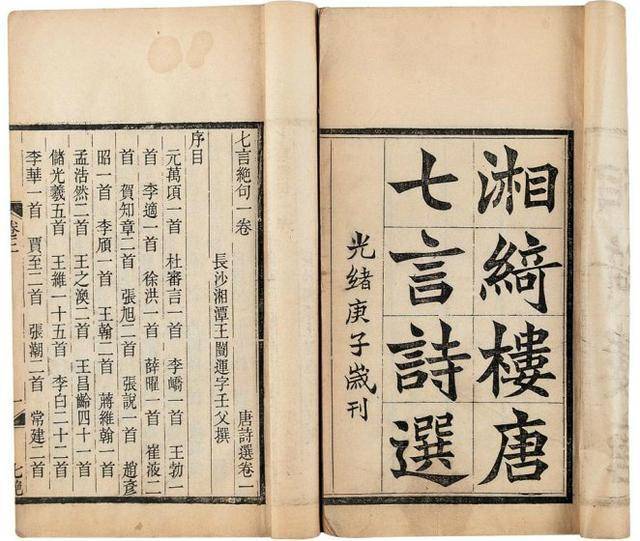 湘綺樓唐
七言詩選
光緒庚子歲刊
七言絕句一卷 唐詩選卷一
長沙湘潭王闓運字壬父撰
序目
元萬頃一首 杜審言一首 李嶠一首 王勃一
首 李適一首 徐洪一首 薛曜一首 崔液二
首 賀知章二首 張旭二首 張說一首 趙彥
昭一首 李頎一首 王翰二首 蔣維翰一首
孟浩然二首 王之渙二首 王昌齡四十一首
儲光羲五首 王維一十五首 李白二十二首
李華一首 賈至二首 張潮二首 常建二首
一 七絕